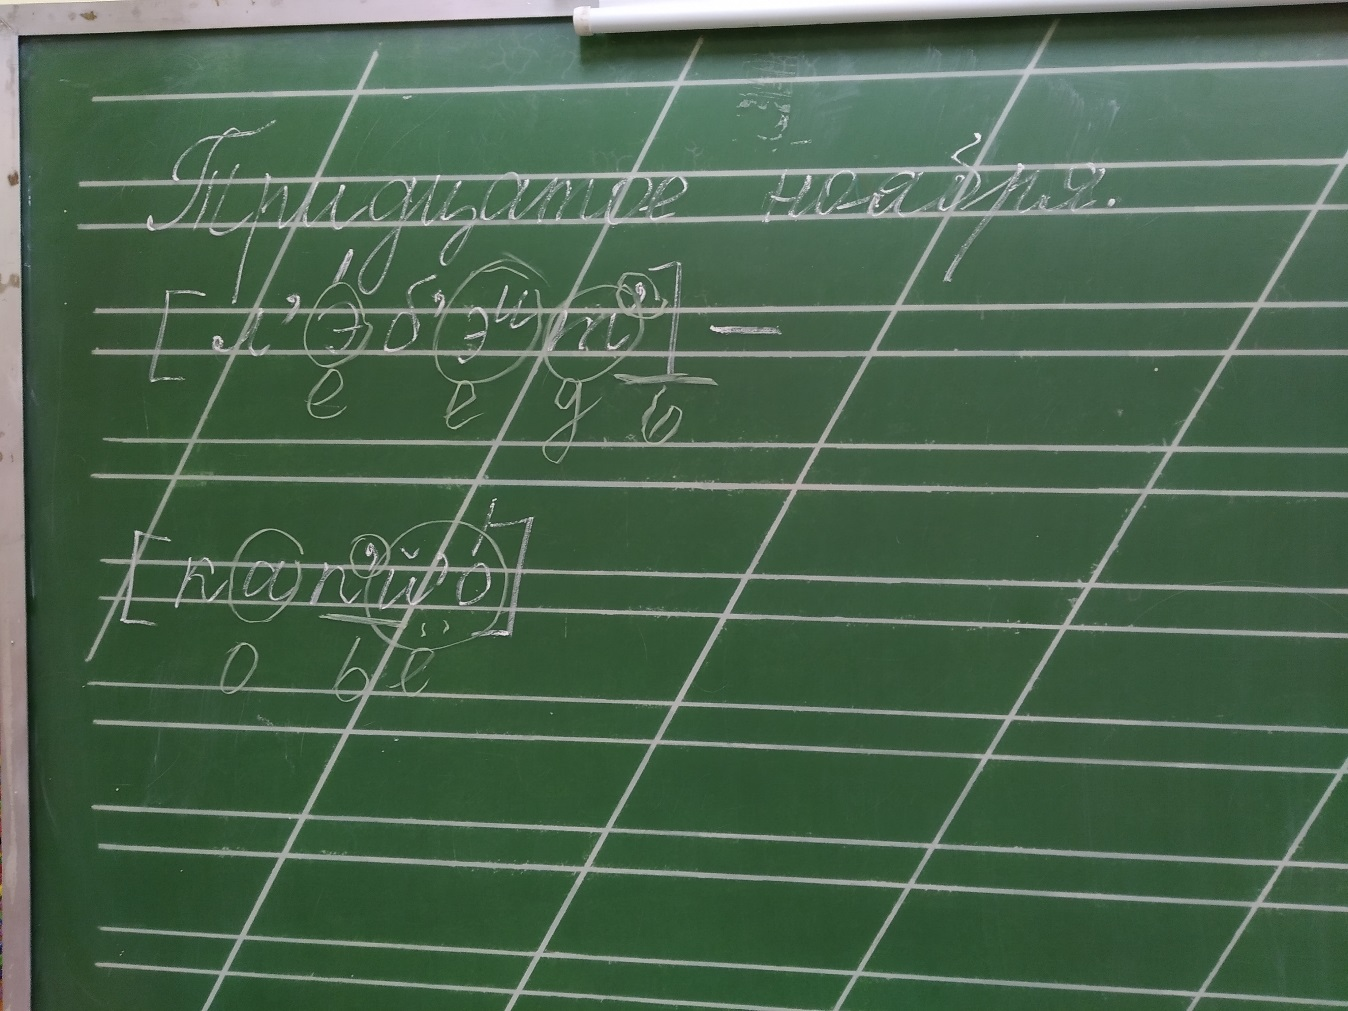 Тридцатое ноября.
[л’эб’эиm’] —
е е д ь
[кап’й’о]
о ь ё